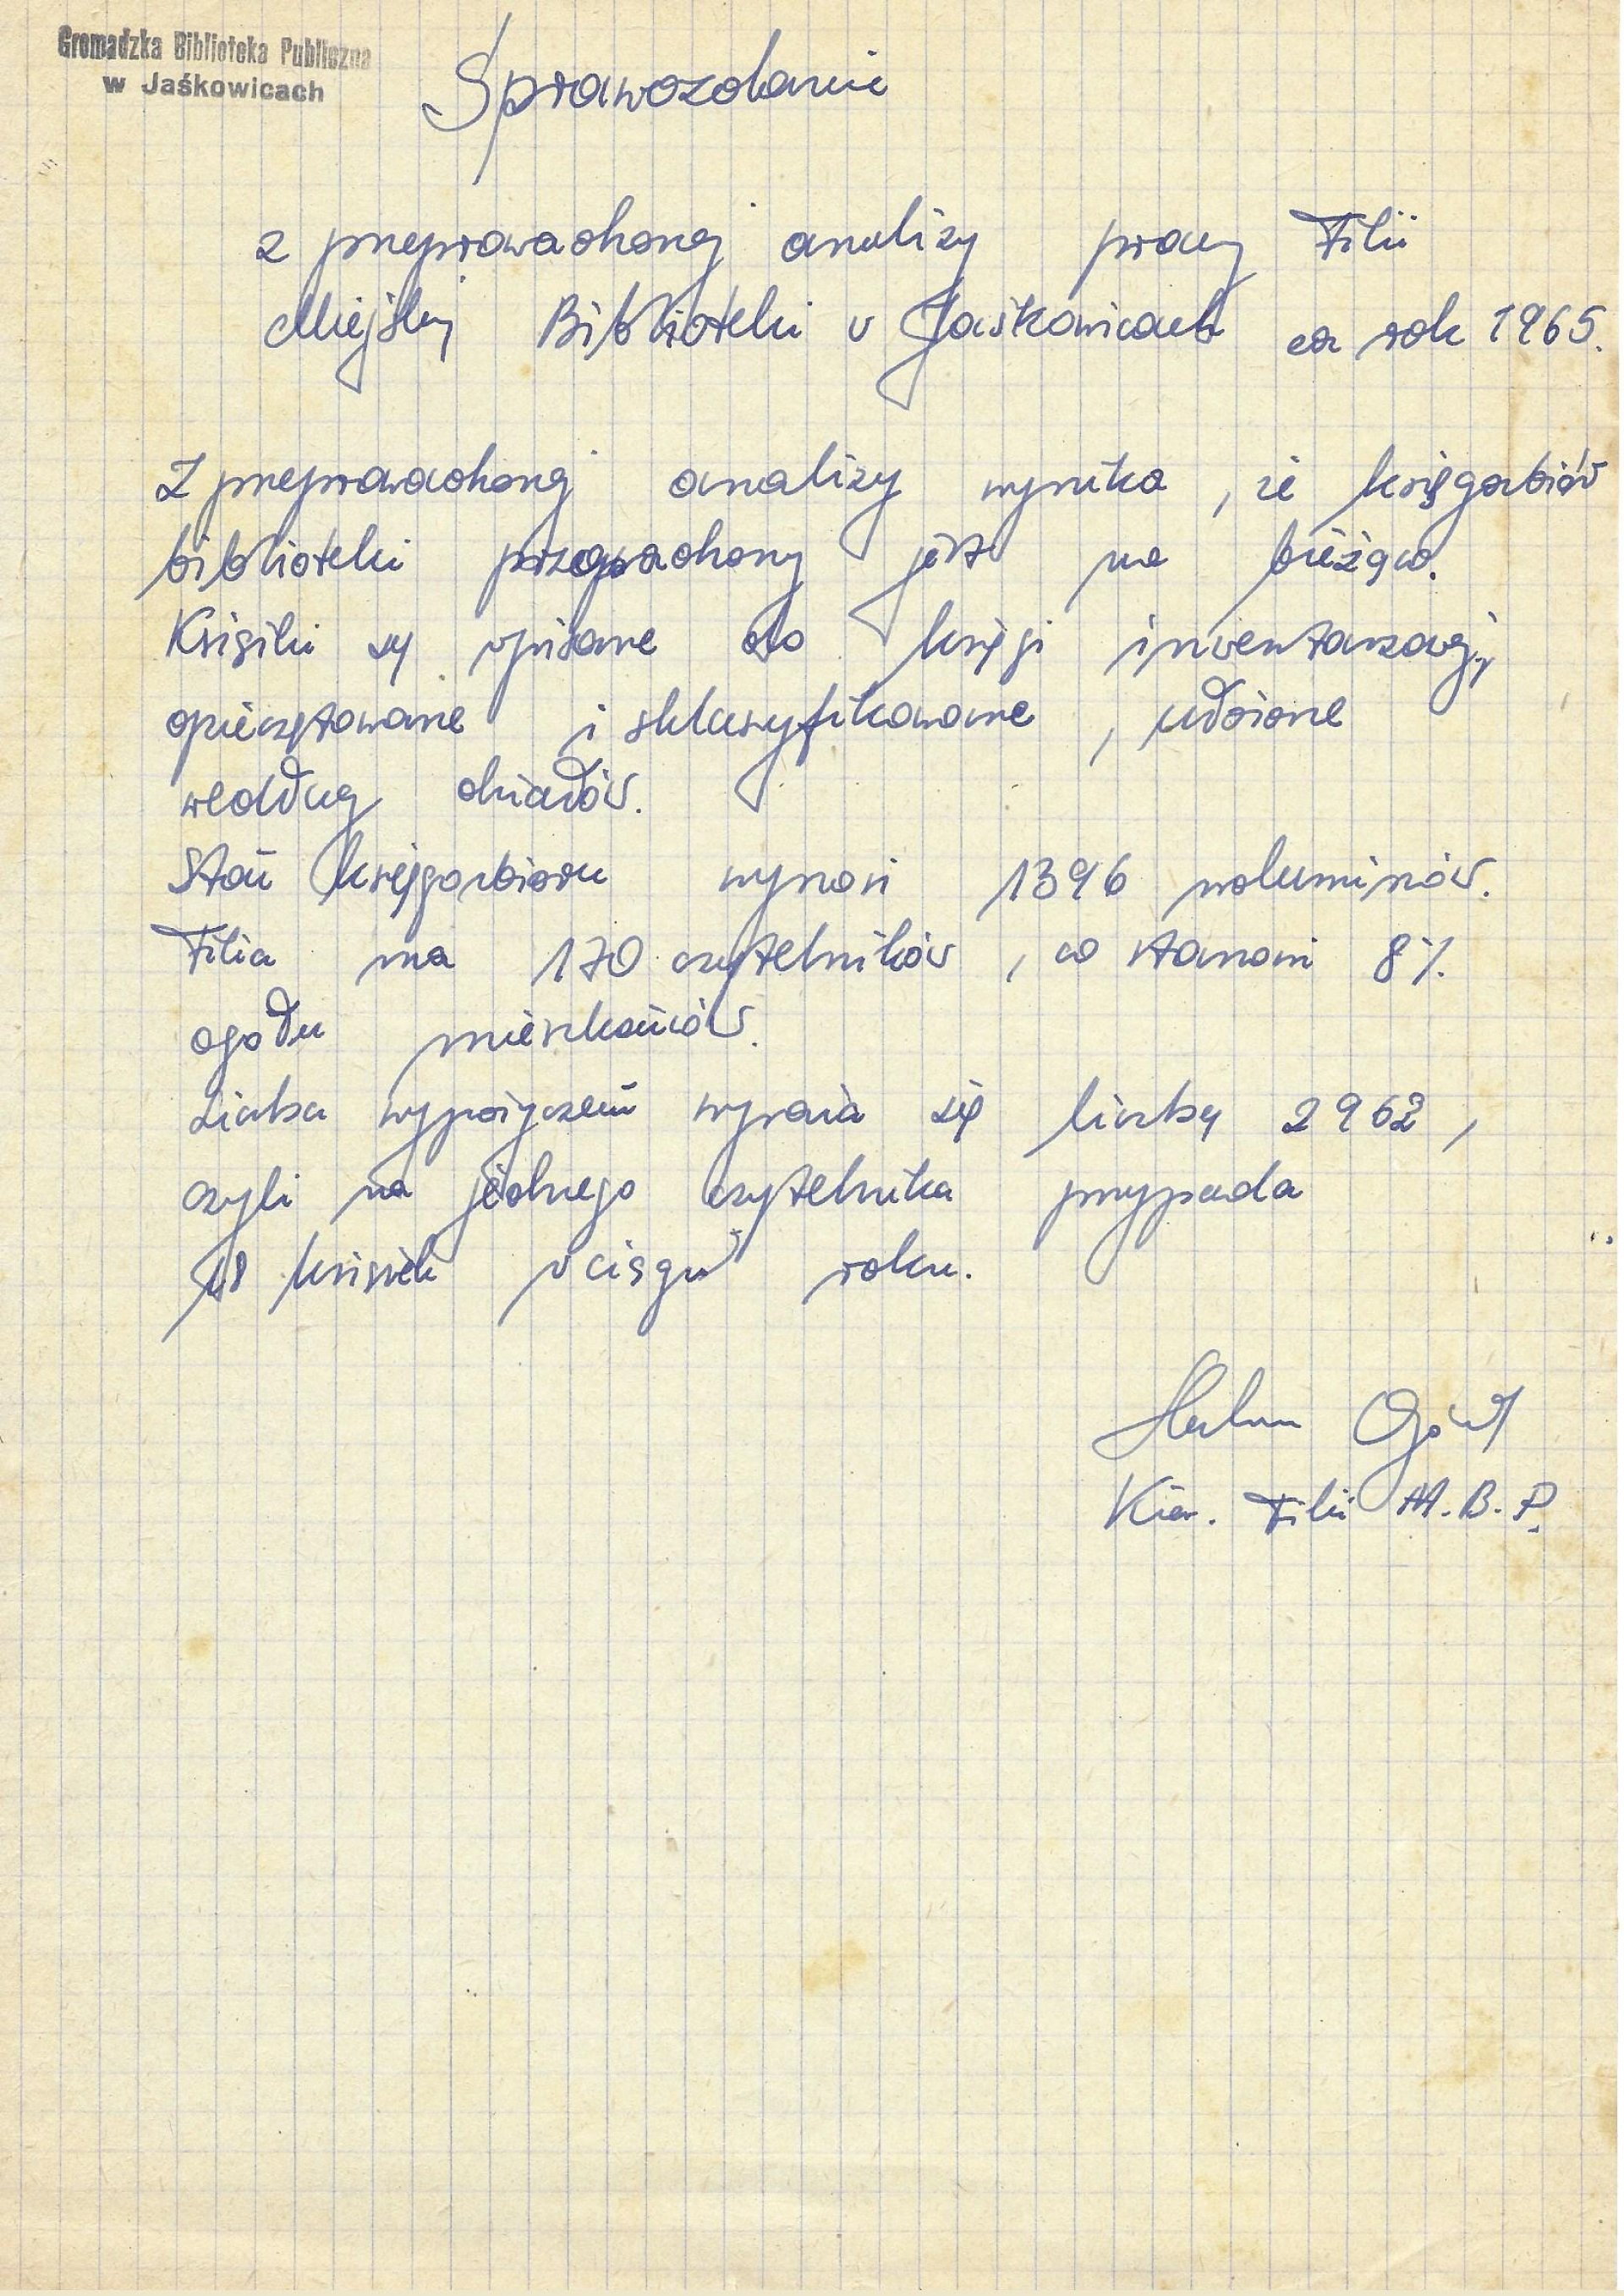 Gromadzka Biblioteka Publiczna
w Jaśkowicach
Sprawozdanie
z przeprowadzonej analizy pracy Filii
Miejskiej Biblioteki w Jaśkowicach za rok 1965.
Z przeprowadzonej analizy wynika, że księgozbiór
biblioteki prowadzony jest na bieżąco.
Książki są wpisane do księgi inwentarzowej,
opieczętowane i sklasyfikowane, ułożone
według działów.
Stan księgozbioru wynosi 1396 woluminów.
Filia ma 170 czytelników, co stanowi 8%
ogółu mieszkańców.
Liczba wypożyczeń wyraża się liczbą 2962,
czyli na jednego czytelnika przypada
18 książek w ciągu roku.
Kier. Filii M.B.P.